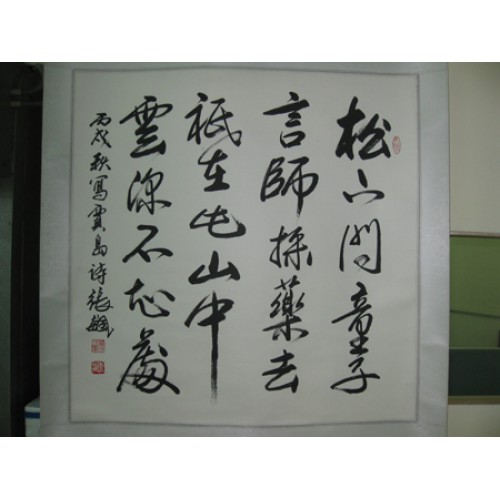 松下問童子
言師採藥去
祗在此山中
雲深不知處
丙戌秋寫賈島诗張